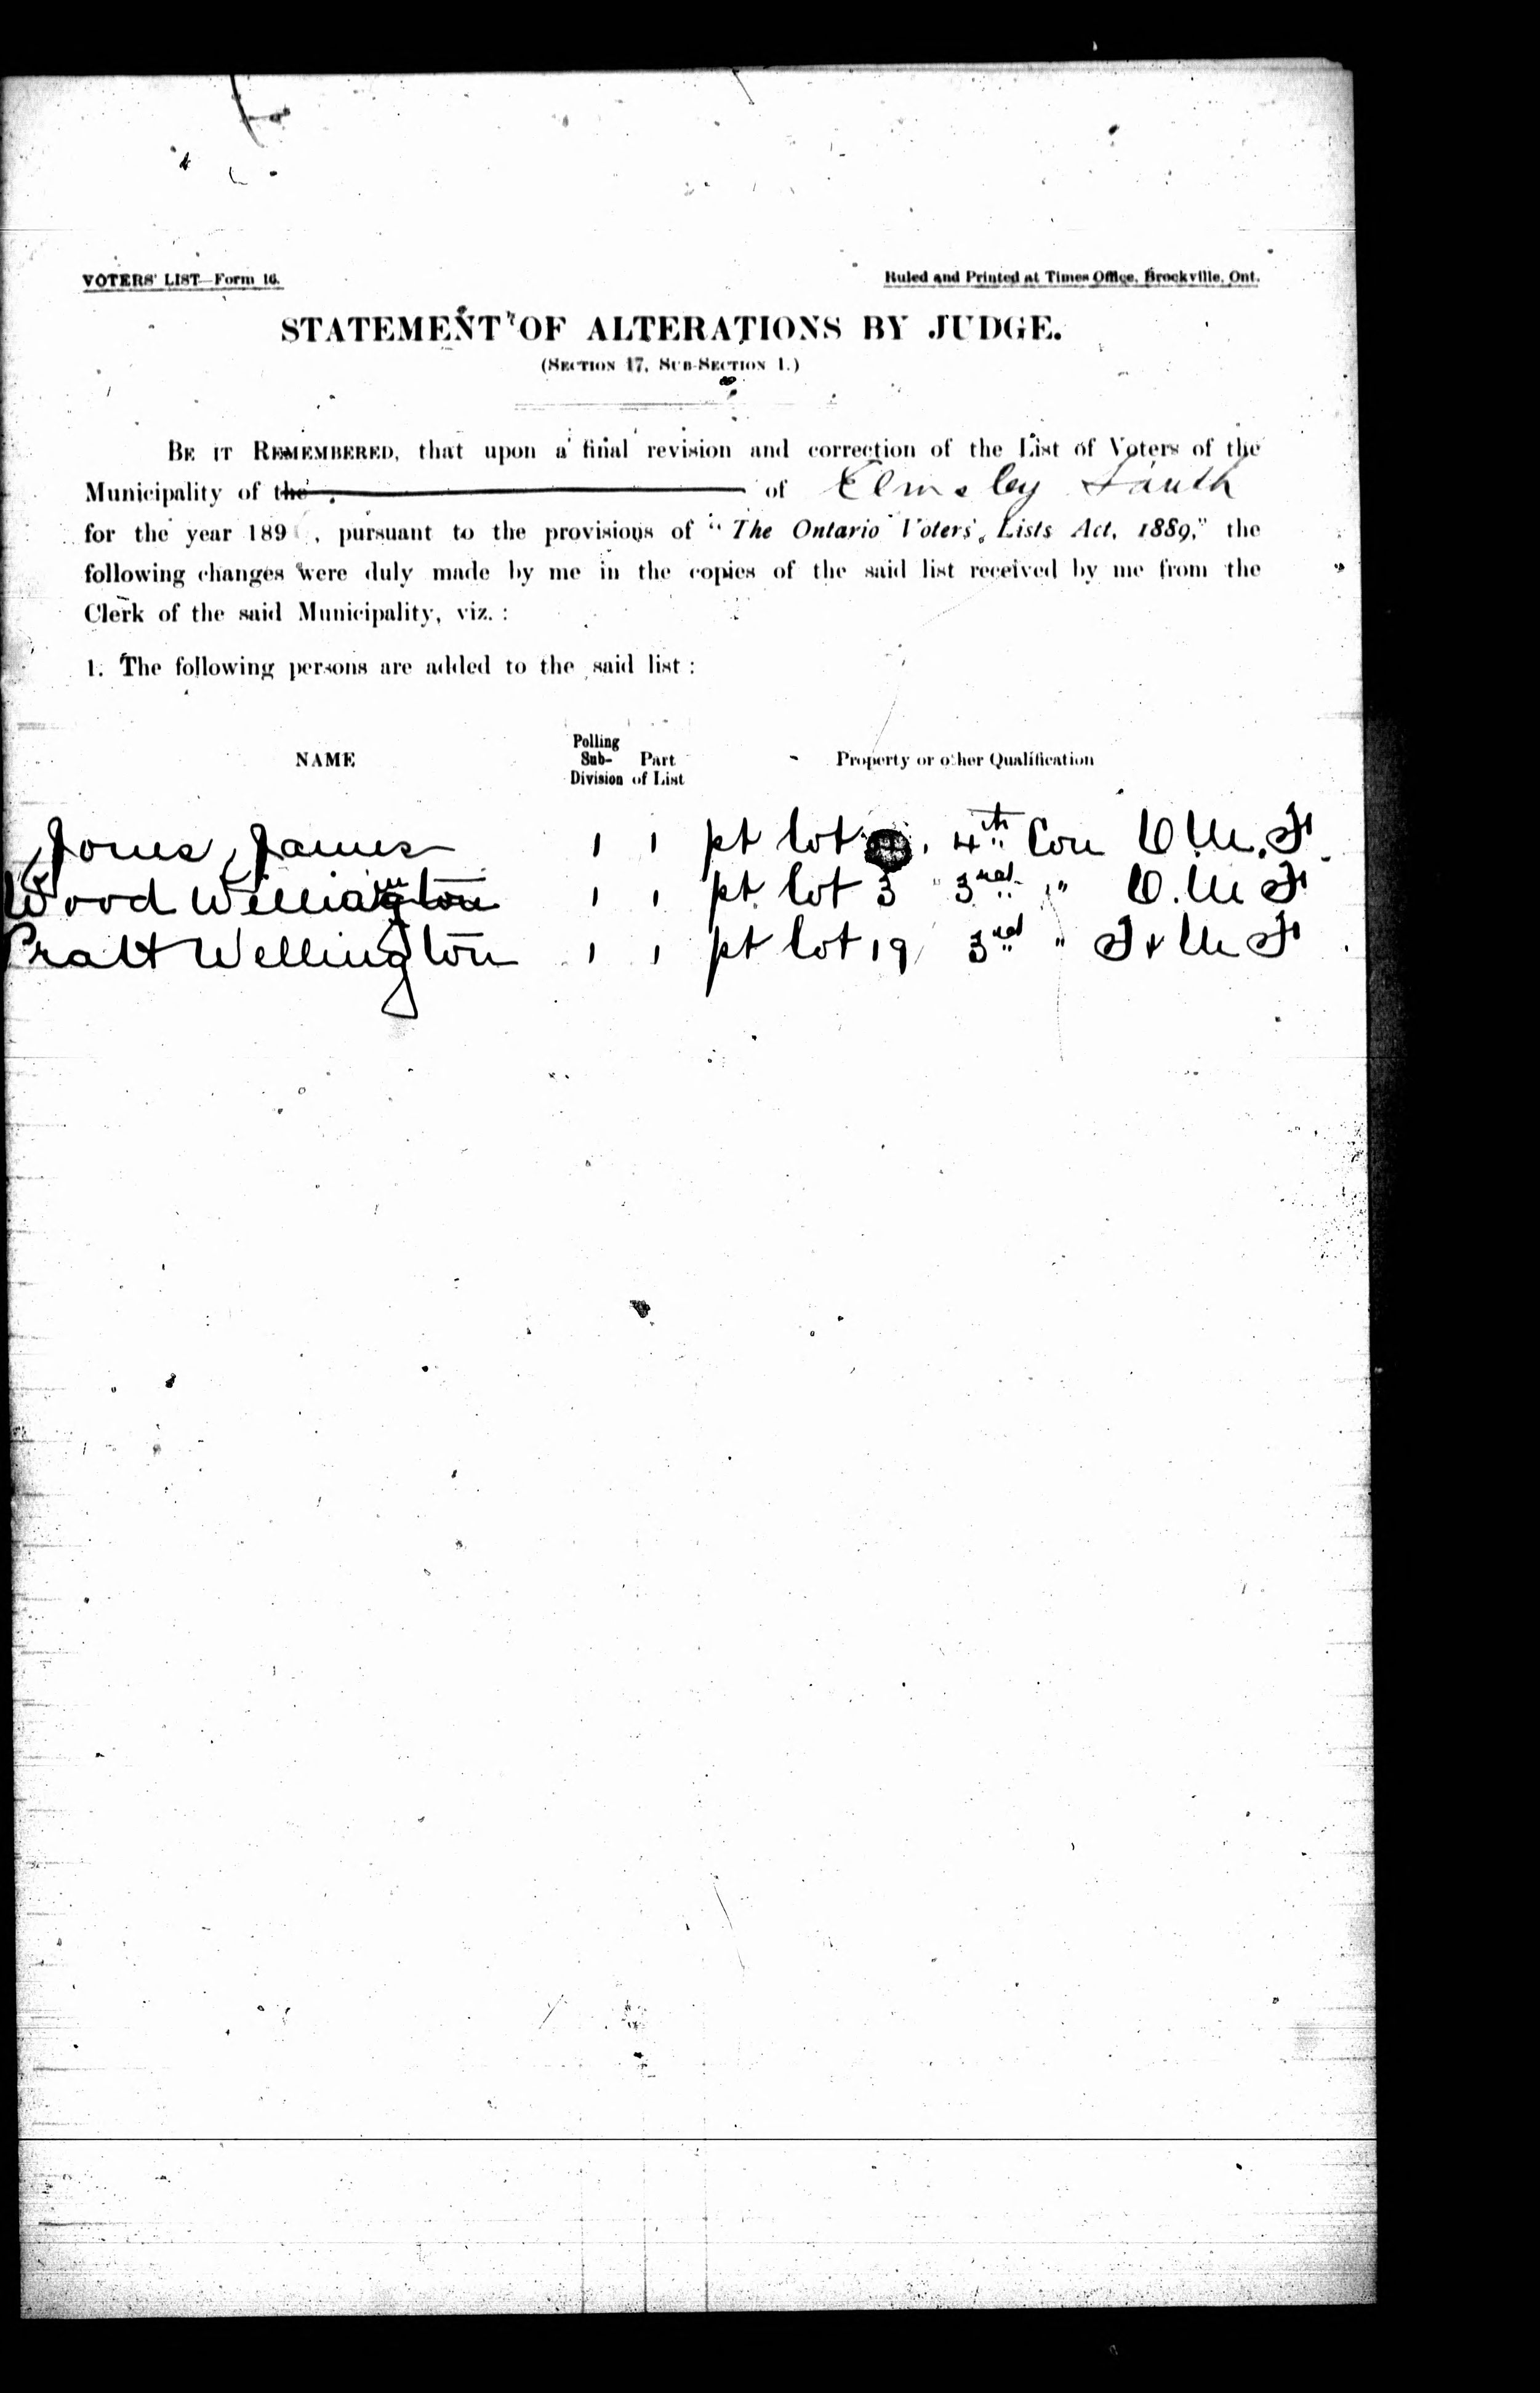 VOTERS' LIST—Form 16.
Ruled and Printed at Times Office, Brockville, Ont.
STATEMENT OF ALTERATIONS BY JUDGE.
(SECTION 17, SUB-SECTION 1.)
BE IT REMEMBERED, that upon a final revision and correction of the List of Voters of the
Municipality of the of Elmsley South
for the year 189 , pursuant to the provisions of "The Ontario Voters' Lists Act, 1889," the
following changes were duly made by me in the copies of the said list received by me from the
Clerk of the said Municipality, viz. :
1. The following persons are added to the said list :
NAME Polling Sub-Division Part of List Property or other Qualification
Jones James 1 1 pt lot 4th Con O M. F
Wood William 1 1 pt lot 3 3rd " O. M F
Pratt Wellington 1 1 pt lot 19 3rd " T & M F